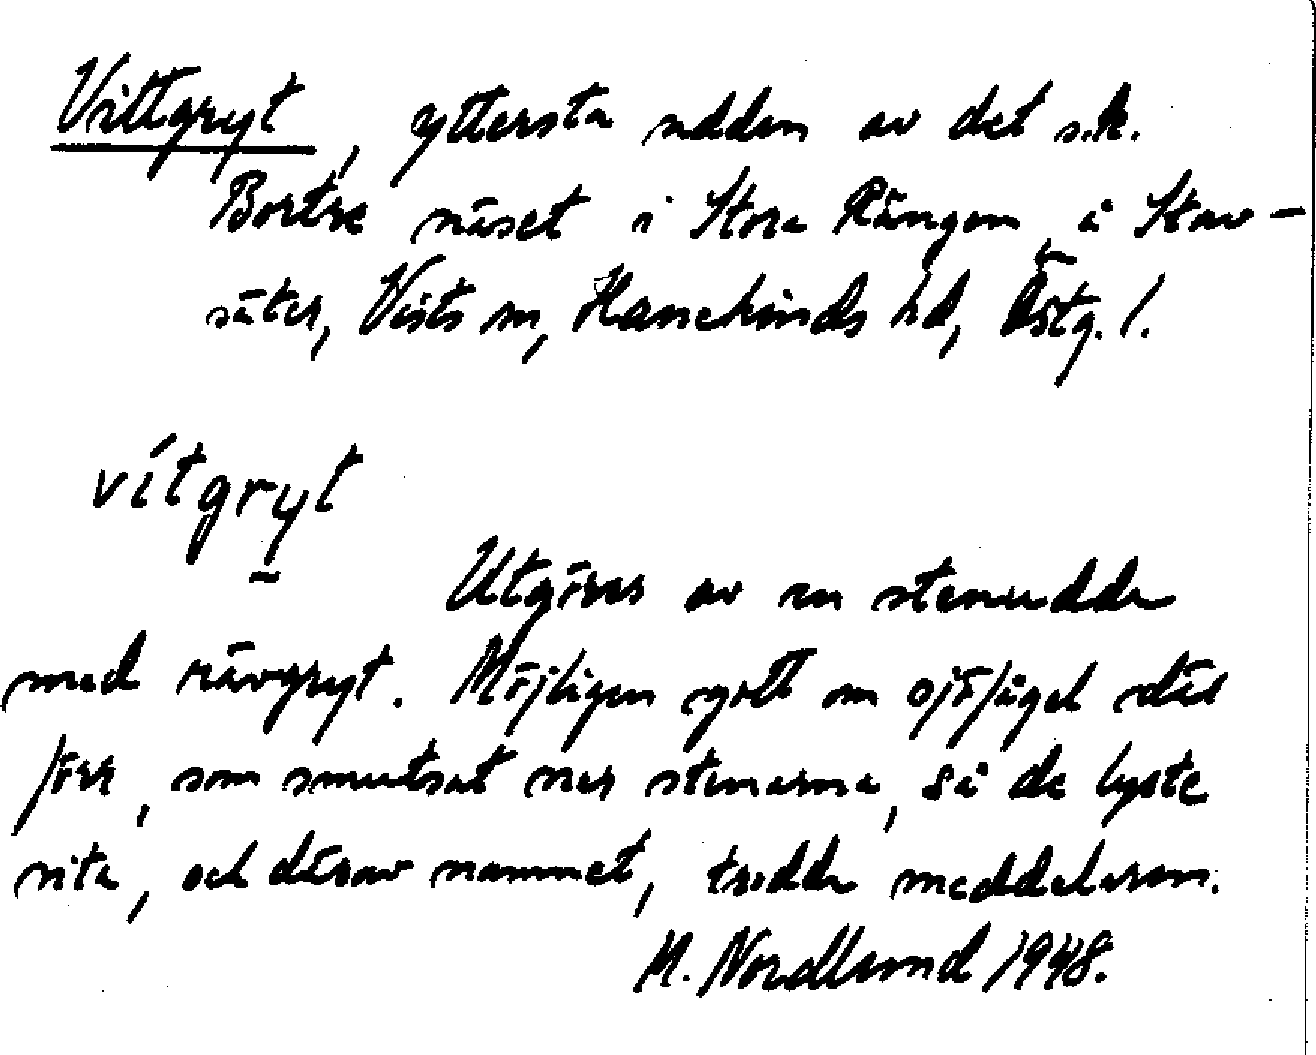 Vittgryt, yttersta udden av det s.k.
Bortre näset i Stora Rängen, å Stav-
säter, Vists sn, Hanekinds hd, Östg. l.
vítgryt
Utgöres av en stenudde
med rävgryt. Möjligen gott om sjöfågel där
förr, som smutsat ner stenarna, så de lyste
vita, och därav namnet, trodde meddelaren.
M. Nordlund 1948.